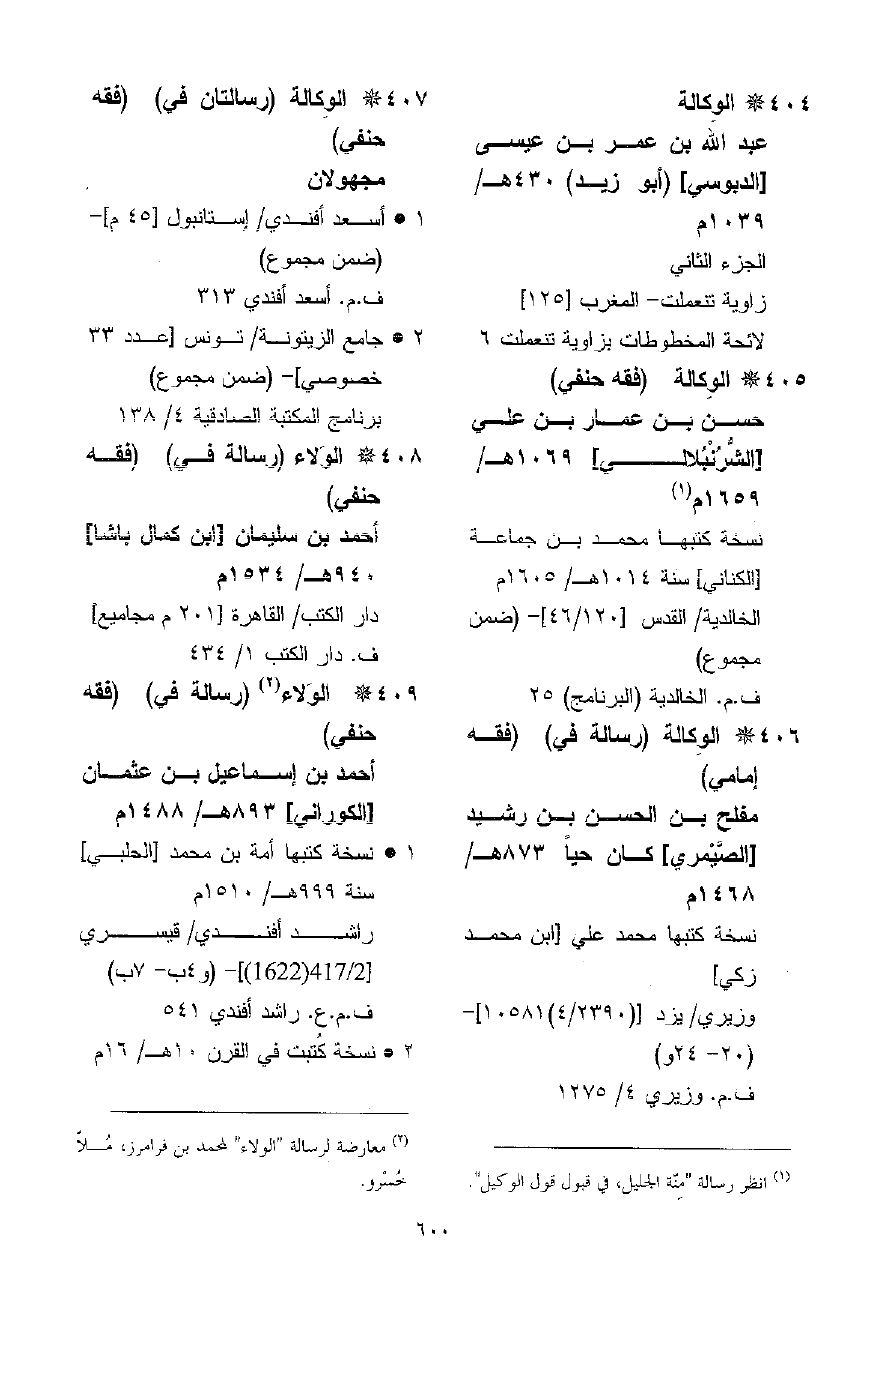 ٤٠٤ ❊ الوِكالة
عبد الله بن عمر بن عيسى
[الدبوسي] (أبو زيد) ٤٣٠هـ/
١٠٣٩م
الجزء الثاني
زاوية تنعملت- المغرب [١٢٥]
لائحة المخطوطات بزاوية تنعملت ٦
٤٠٥ ❊ الوِكالة (فقه حنفي)
حسن بن عمار بن علي
[الشُّرُنْبُلالي] ١٠٦٩هـ/
١٦٥٩م(١)
نسخة كتبها محمد بن جماعة
[الكناني] سنة ١٠١٤هـ/ ١٦٠٥م
الخالدية/ القدس [٤٦/١٢٠]- (ضمن
مجموع)
ف.م. الخالدية (البرنامج) ٢٥
٤٠٦ ❊ الوِكالة (رسالة في) (فقه
إمامي)
مفلح بن الحسن بن رشيد
[الصَّيْمري] كان حياً ٨٧٣هـ/
١٤٦٨م
نسخة كتبها محمد علي [ابن محمد
زكي]
وزيري/ يزد [(٤/٢٣٩٠)١٠٥٨١]-
(٢٠- ٢٤و)
ف.م. وزيري ٤/ ١٢٧٥
(١) انظر رسالة "مِنّة الجليل، في قبول قول الوكيل".
٤٠٧ ❊ الوِكالة (رسالتان في) (فقه
حنفي)
مجهولان
١ ● أسعد أفندي/ إستانبول [٤٥ م]-
(ضمن مجموع)
ف.م. أسعد أفندي ٣١٣
٢ ● جامع الزيتونة/ تونس [عدد ٣٣
خصوصي]- (ضمن مجموع)
برنامج المكتبة الصادقية ٤/ ١٣٨
٤٠٨ ❊ الوَلاء (رسالة في) (فقه
حنفي)
أحمد بن سليمان [ابن كمال باشا]
٩٤٠هـ/ ١٥٣٤م
دار الكتب/ القاهرة [٢٠١ م مجاميع]
ف. دار الكتب ١/ ٤٣٤
٤٠٩ ❊ الوَلاء(٢) (رسالة في) (فقه
حنفي)
أحمد بن إسماعيل بن عثمان
[الكوراني] ٨٩٣هـ/ ١٤٨٨م
١ ● نسخة كتبها أمة بن محمد [الحلبي]
سنة ٩٩٩هـ/ ١٥١٠م
راشد أفندي/ قيسري
[417/2(1622)]- (و٤ب- ٧ب)
ف.م.ع. راشد أفندي ٥٤١
٢ ● نسخة كُتبت في القرن ١٠هـ/ ١٦م
(٢) معارضة لرسالة "الولاء" لمحمد بن فرامرز، مُلاّ
خُسْرو.
٦٠٠